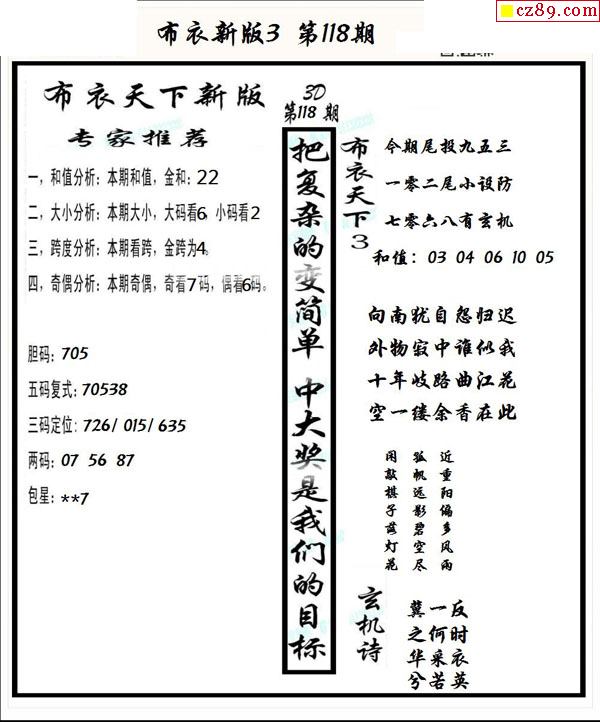 cz89.com
布衣新版3 第118期
布衣天下新版
专家推荐
一，和值分析：本期和值，金和：22
二，大小分析：本期大小，大码看6，小码看2
三，跨度分析：本期看跨，金跨为4。
四，奇偶分析：本期奇偶，奇看7码，偶看6码。
胆码：705
五码复式：70538
三码定位：726/ 015/ 635
两码：07 56 87
包星：**7
3D
第118 期
把复杂的变简单 中大奖是我们的目标
布衣天下3
今期尾投九五三
一零二尾小设防
七零六八有玄机
和值：03 04 06 10 05
向南犹自怨归迟
外物寂中谁似我
十年岐路曲江花
空一缕余香在此
近重阳偏多风雨
孤帆远影碧空尽
闲敲棋子落灯花
玄机诗
冀一反
之何时
华采衣
兮若英